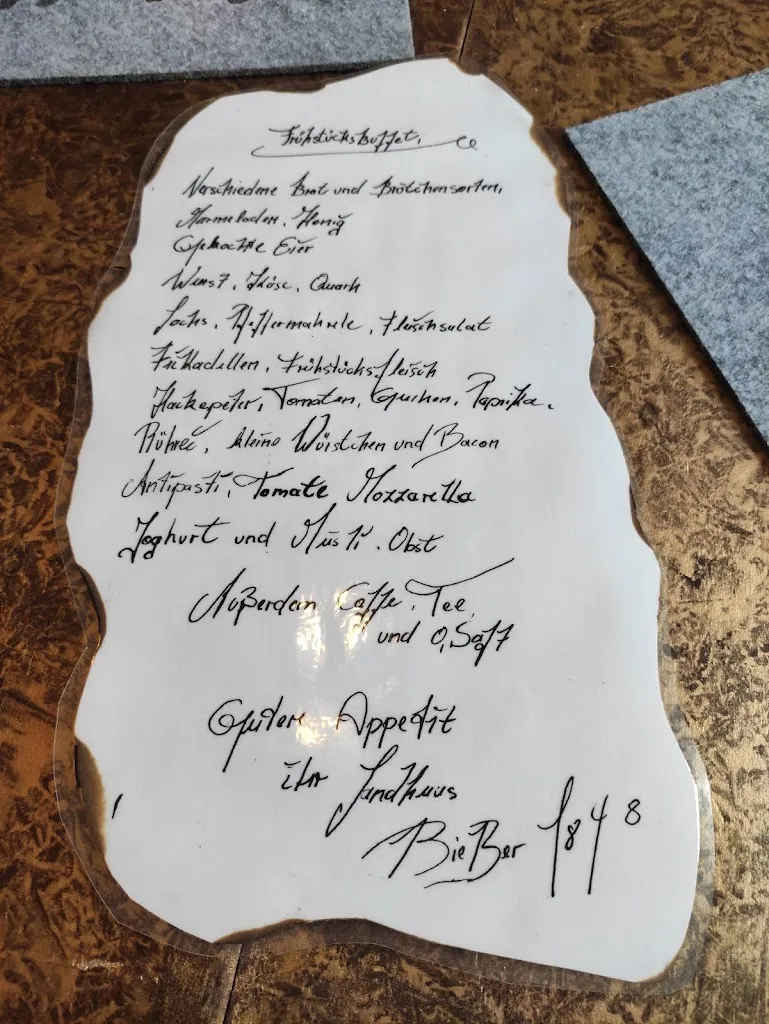 Frühstücksbuffet.
Verschiedene Brot und Brötchensorten,
Marmeladen. Honig
Gekochte Eier
Wurst, Käse, Quark
Lachs, Pfeffermakrele, Fleischsalat
Frikadellen, Frühstücksfleisch
Hackepeter, Tomaten, Gurken, Paprika.
Rührei, kleine Würstchen und Bacon
Antipasti, Tomate Mozzarella
Joghurt und Müsli. Obst
Außerdem Caffe, Tee,
und O,Saft
Guten Appetit
ihr Landhaus
BieBer 1848